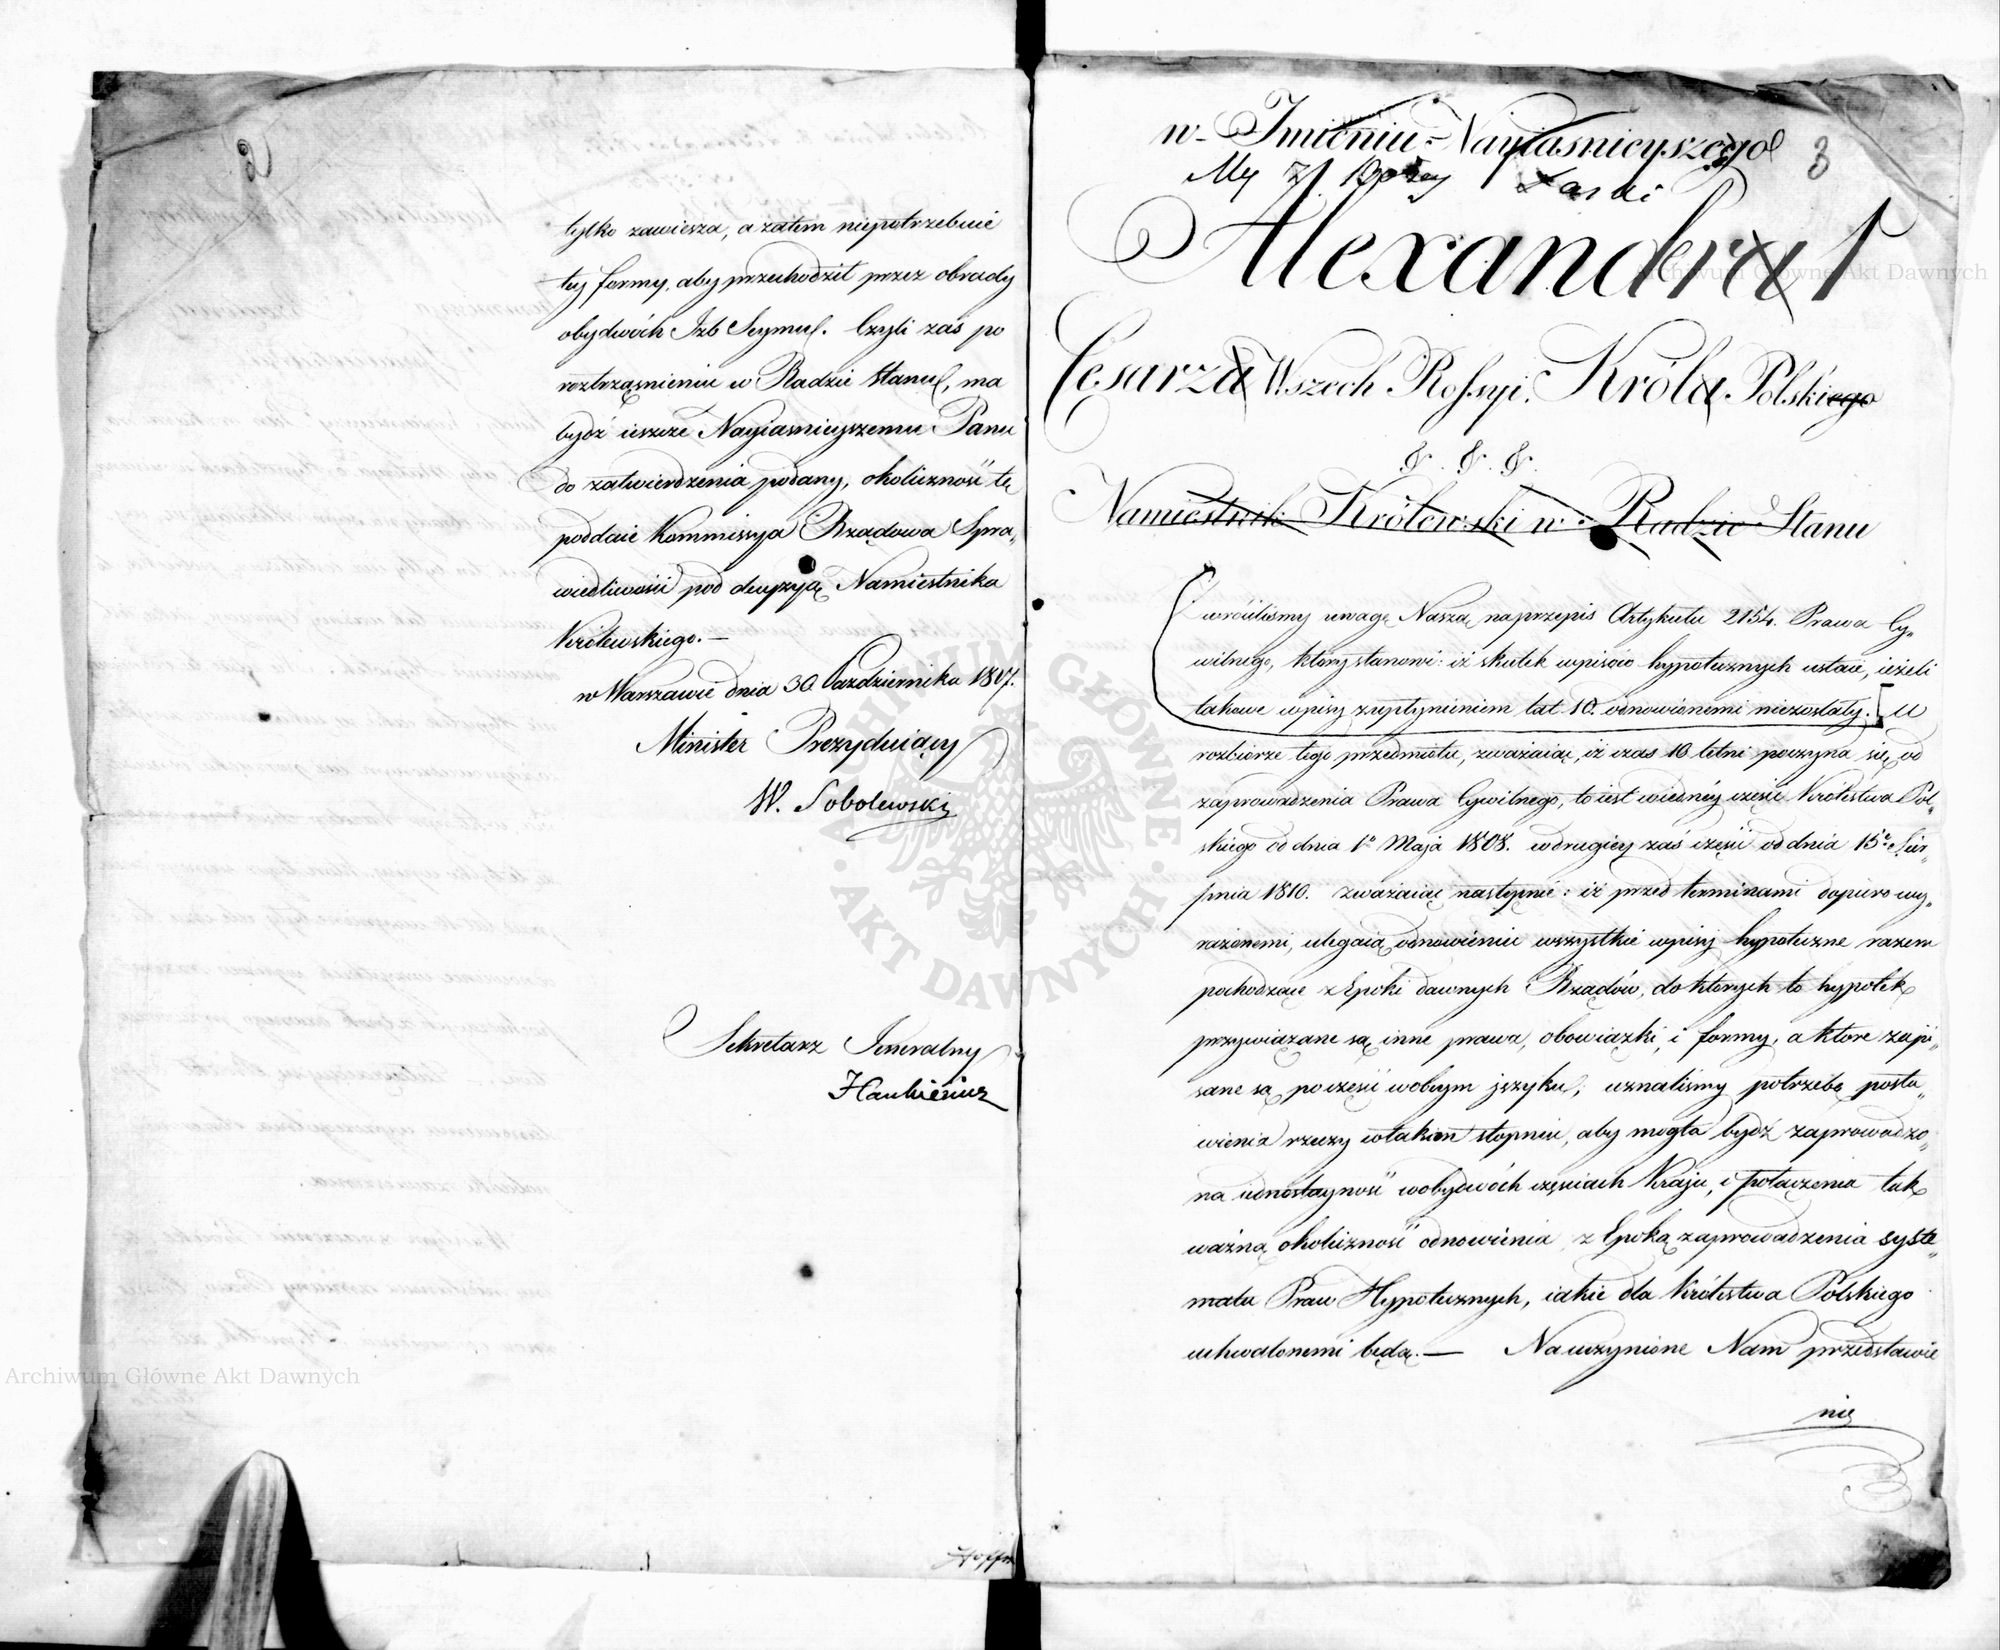 2
tylko zawiesza, a zatem niepotrzebuie
tey formy, aby przechodził przez obrady
obydwóch Izb Seymu. Czyli zaś po
roztrząśnieniu w Radzie Stanu, ma
bydź ieszcze Nayiaśnieyszemu Panu
do zatwierdzenia podany, okoliczność tę
poddaie Kommissya Rządowa Spra„
wiedliwości pod decyzyą Namiestnika
Królewskiego.—
w Warszawie dnia 30 Października 1817.
Minister Prezyduiący
W. Sobolewski
Sekretarz Jeneralny
Hankiewicz
3
w Imieniu Nayiaśnieyszego
My Z Bożey Łaski
Alexandra I
Cesarza Wszech Rossyi, Króla Polskiego
& . & . &.
Namiestnik Królewski w Radzie Stanu
wróciliśmy uwagę Naszą na przepis Artykułu 2154. Prawa Cy„
wilnego, który stanowi: iż skutek wpisów hypotecznych ustaie, ieżeli
takowe wpisy z upłynieniem lat 10. odnowionemi niezostały. U
rozbiorze tego przedmiotu, zważaiąc, iż czas 10 letni poczyna się od
zaprowadzenia Prawa Cywilnego, to iest w iedney części Królestwa Pol„
skiego od dnia 1o Maja 1808. w drugiey zaś części od dnia 15o Sier„
pnia 1810. zważaiąc następnie: iż przed terminami dopiero wy„
rażonemi, ulegaią odnowieniu wszystkie wpisy hypoteczne razem
pochodzące z Epoki dawnych Rządów, do których to hypotek
przywiązane są inne prawa, obowiązki, i formy, a które zapi„
sane są po części w obcym języku; uznaliśmy potrzebę posta„
wienia rzeczy w takim stopniu, aby mogła bydź zaprowadzo„
na iednostayność w obydwóch częściach Kraju, i połączenia tak
ważną okoliczność odnowienia z Epoką zaprowadzenia syste„
matu Praw Hypotecznych, iakie dla Królestwa Polskiego
uchwalonemi będą.— Na uczynione Nam przedstawie
nie
Archiwum Główne Akt Dawnych
Archiwum Główne Akt Dawnych
ARCHIWUM GŁÓWNE · AKT DAWNYCH ·